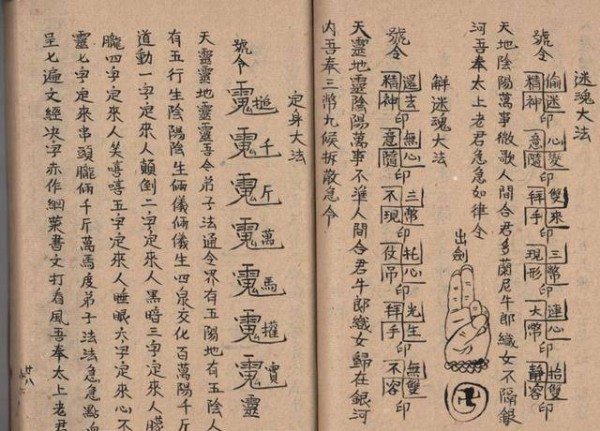 迷魂大法
號令 偷迷精神印 心变意隨印 雙來拜手印 三幣現形印 連心大幣印 抬雙静容印
天地陰陽萬事微歌人間合君多蘭尼牛郎織女不隔銀
河吾奉太上老君急急如律令
出劍
解迷魂大法
號令 還去精神印 無心意隨印 三幣不現印 托心伎吊印 光生拜手印 無雙不容印
天靈地靈陰陽萬事不準人間合君牛郎織女歸在銀河
内吾奉三幣九候拆散急令
定身大法
號令 追 千 斤 萬 馬 權 寳 靈
天靈靈地靈靈吾令弟子法通令界有五陽地有五陰人
有五行生陰陽陰生俩儀俩儀生四泉交化百萬陽千斤
道動一字定來人顛倒二字定來人黑暗三字定來人朦
朧四字定來人笑嘻嘻五字定來人睡眠六字定來心不
靈七字定來串頭朧俩千斤萬馬度弟子法法急急點
呈七遍文經决字赤作綱葉書文打看風吾奉太上老君
廿八